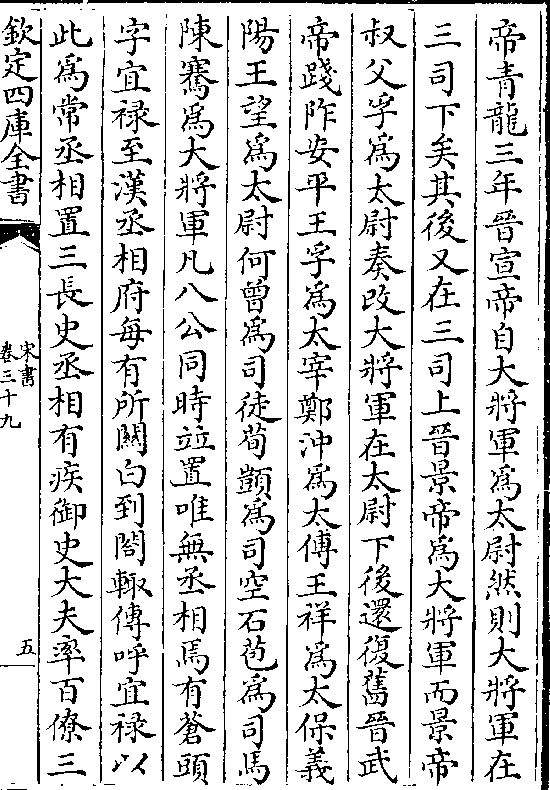 帝青龍三年晉宣帝自大將軍為太尉然則大將軍在
三司下矣其後又在三司上晉景帝為大將軍而景帝
叔父孚為太尉奏改大將軍在太尉下後還復舊晉武
帝踐阼安平王孚為太宰鄭沖為太傅王祥為太保義
陽王望為太尉何曾為司徒荀顗為司空石苞為司馬
陳騫為大將軍凡八公同時竝置唯無丞相焉有蒼頭
字宜祿至漢丞相府每有所關白到閤輙傳呼宜祿以
此為常丞相置三長史丞相有疾御史大夫率百僚三
欽定四庫全書
宋書
卷三十九
五